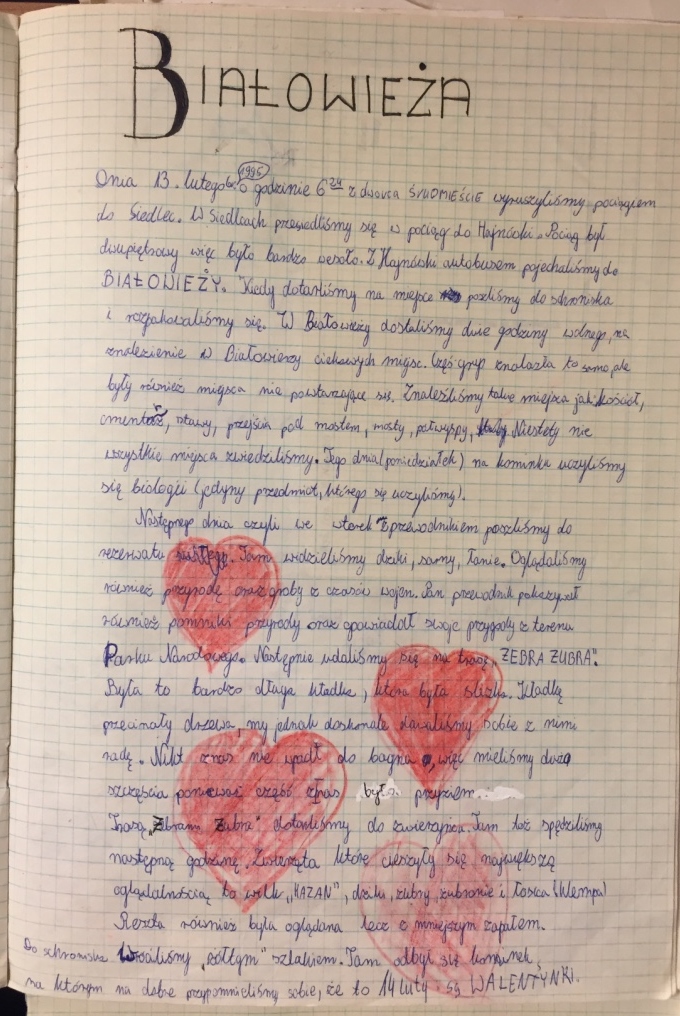 BIAŁOWIEŻA
1995
Dnia 13. lutego br. o godzinie 6 24 z dworca ŚRÓDMIEŚCIE wyruszyliśmy pociągiem
do Siedlec. W Siedlcach przesiedliśmy się w pociąg do Hajnówki. Pociąg był
dwupiętrowy więc było bardzo wesoło. Z Hajnówki autobusem pojechaliśmy do
BIAŁOWIEŻY. Kiedy dotarliśmy na miejsce poszliśmy do schroniska
i rozpakowaliśmy się. W Białowieży dostaliśmy dwie godziny wolnego, na
znalezienie w Białowieży ciekawych miejsc. Część grup znalazła to samo, ale
były również miejsca nie powtarzające się. Znaleźliśmy takie miejsca jak: kościół,
cmentarz, stawy, przejścia pod mostem, mosty, półwyspy, Niestety nie
wszystkie miejsca zwiedziliśmy. Tego dnia (poniedziałek) na kominku uczyliśmy
się biologii (jedyny przedmiot, którego się uczyliśmy).
Następnego dnia czyli we wtorek z przewodnikiem poszliśmy do
rezerwatu Tam widzieliśmy dziki, sarny, łanie. Oglądaliśmy
również przyrodę oraz groby z czasów wojen. Pan przewodnik pokazywał
również pomniki przyrody oraz opowiadał swoje przygody z terenu
Parku Narodowego. Następnie udaliśmy się na trasę „ŻEBRA ŻUBRA".
Była to bardzo długa kładka, która była śliska. Kładkę
przecinały drzewa, my jednak doskonale dawaliśmy sobie z nimi
radę. Nikt z nas nie wpadł do bagna, więc mieliśmy dużo
szczęścia ponieważ część z nas była przyziem
Trasą „Żebrami Żubra" dotarliśmy do zwierzyńca. Tam też spędziliśmy
następną godzinę. Zwierzęta które cieszyły się największą
oglądalnością to wilk „KAZAN", dziki, żubry, żubronie i łosica (klempa)
Reszta również była oglądana lecz z mniejszym zapałem.
Do schroniska wróciliśmy „żółtym" szlakiem. Tam odbył się kominek,
na którym na dobre przypomnieliśmy sobie, że to 14 luty - są WALENTYNKI.